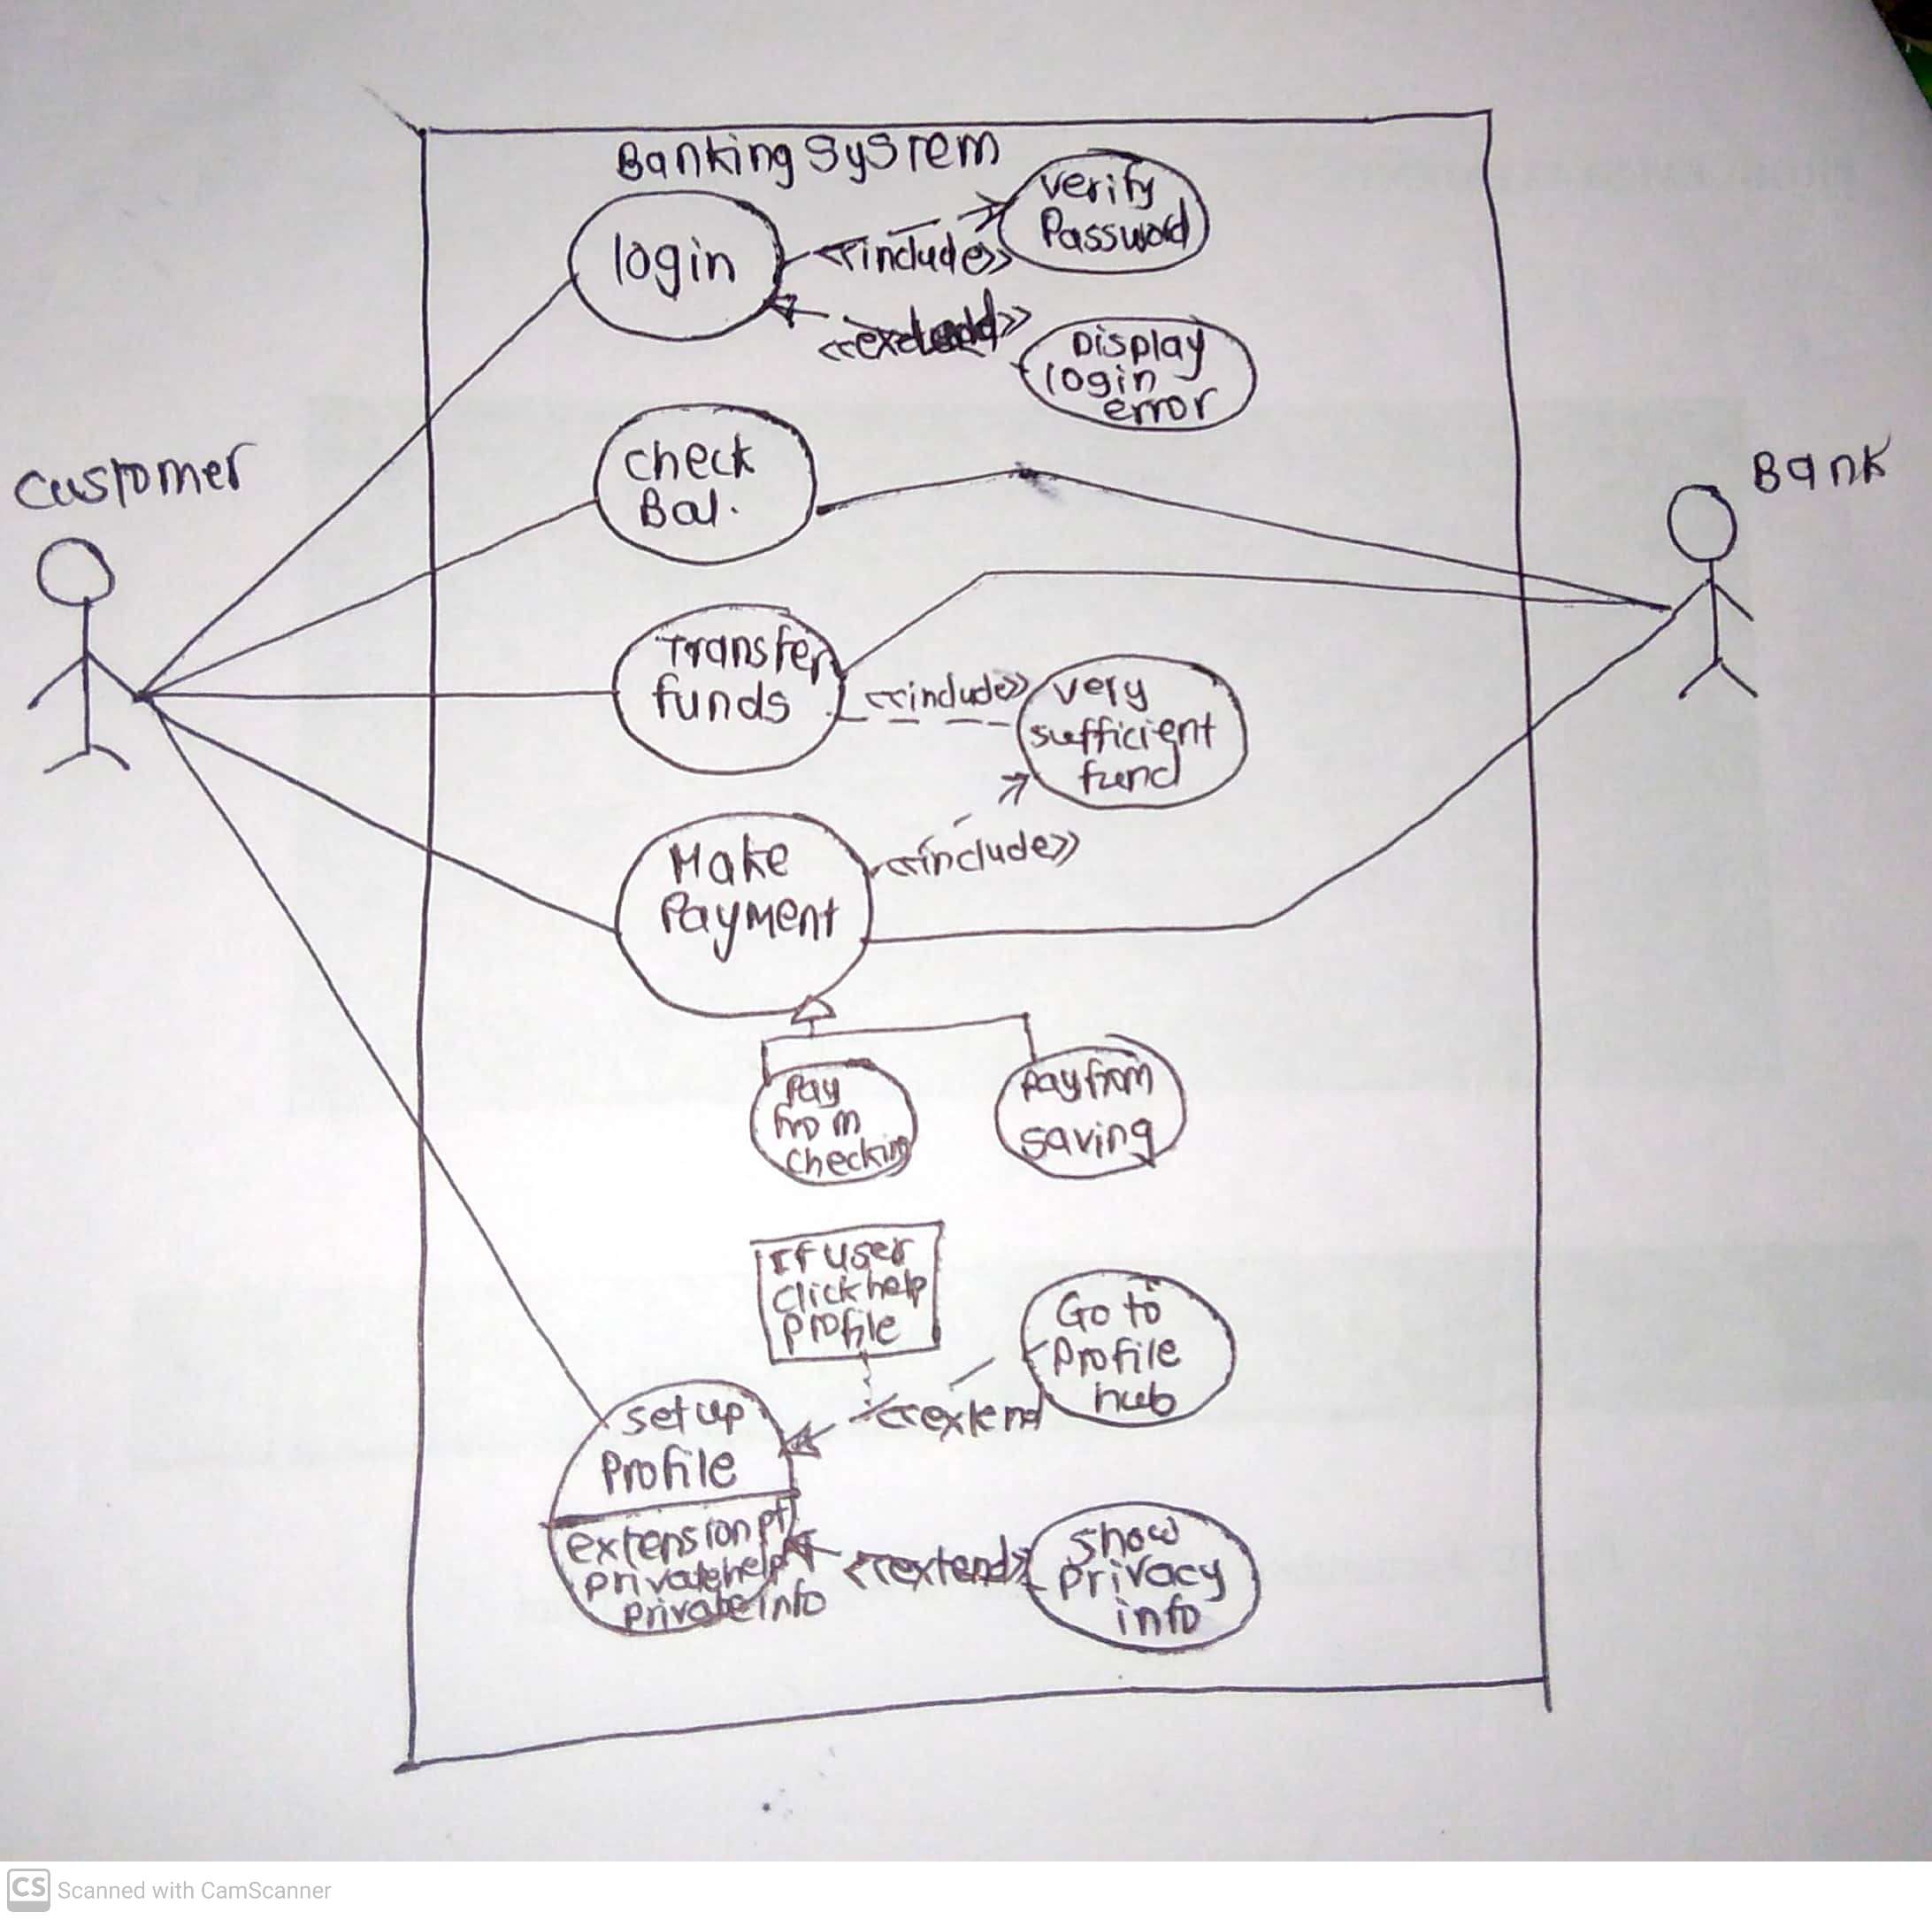 Banking System
login
<<include>>
Verify
Password
Display
login
error
Customer
Check
Bal.
Bank
Transfer
funds
<<include>>
very
sufficient
fund
Make
Payment
<<include>>
Pay
from
checking
Pay from
saving
If user
click help
profile
Go to
Profile
hub
<<extend
set up
Profile
extension pt
private help
private info
<<extend>>
show
privacy
info
CS Scanned with CamScanner